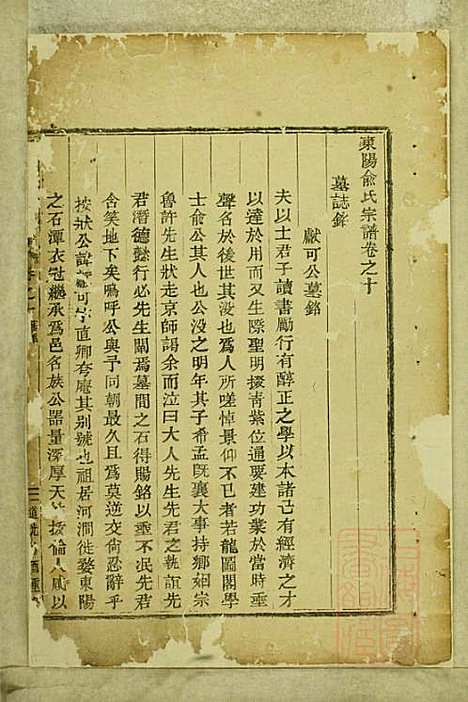 東陽俞氏宗譜卷之十
墓誌銘
獻可公墓銘
夫以士君子讀書勵行有醇正之學以本諸己有經濟之才
以達於用而又生際聖明掇靑紫位通要建功業於當時垂
聲名於後世其沒也爲人所嗟悼景仰不已者若龍圖閣學
士俞公其人也公沒之明年其子希孟旣襄大事持鄉姻宗
魯許先生狀走京師謁余而泣曰大人先生先君之執誼先
君潛德懿行必先生闡爲墓間之石得賜銘以垂不泯先君
含笑地下矣嗚呼公與予同朝最久且爲莫逆交尙忍辭乎
按狀公諱可字直卿夸庵其別號也祖居河澗徙婺東陽
之石潭衣冠繼承爲邑名族公器量深厚天以